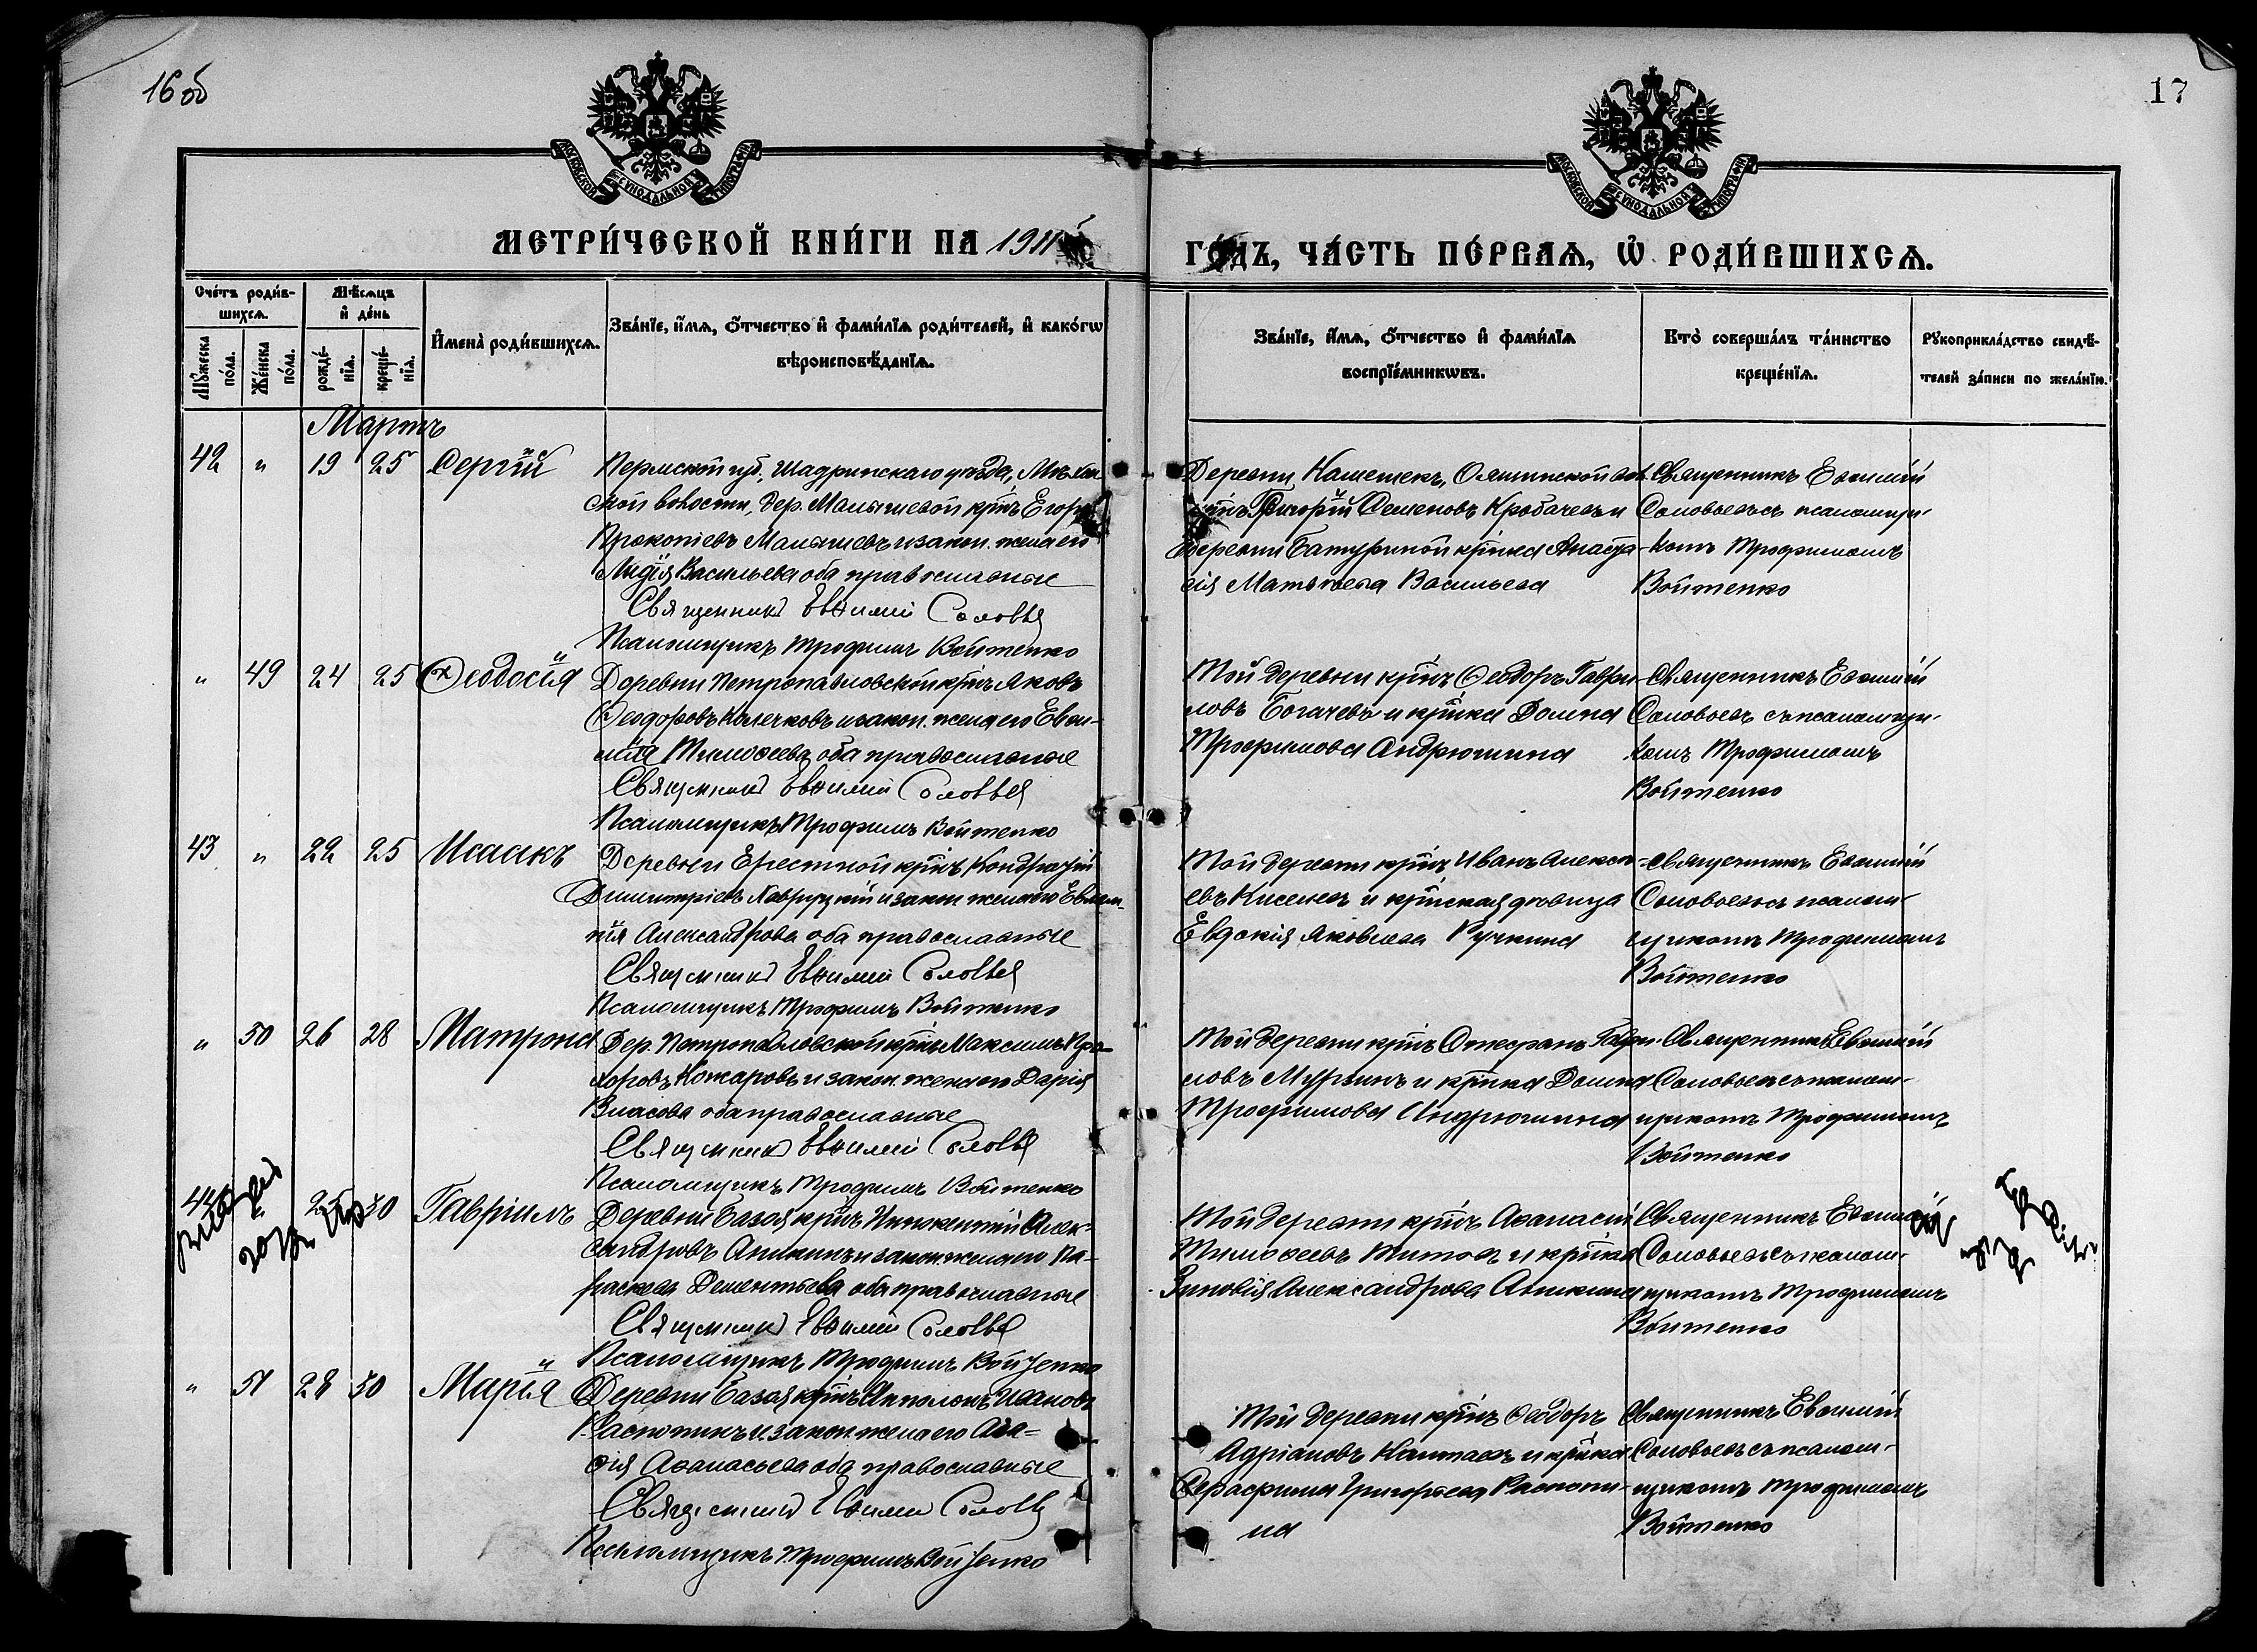 16 об
17
МОСКОВСКОЙ СѴНОДАЛЬНОЙ ТИПОГРАФІИ
МОСКОВСКОЙ СѴНОДАЛЬНОЙ ТИПОГРАФІИ
МЕТРИ́ЧЕСКОЙ КНИ́ГИ НА 1911й
ГО́ДЪ, ЧА́СТЬ ПЕ́РВАѦ, Ѽ РОДИ́ВШИХСѦ.
Сче́тъ роди́в-
шихсѧ.
Мꙋ́жеска по́ла.
Же́нска по́ла.
Мѣ́сѧцъ
и҆ де́нь
рожде́-
нїѧ.
креще́-
нїѧ.
И҆мена̀ роди́вшихсѧ.
Зва́нїе, и҆́мѧ, ѻ҆́тчество и҆ фами́лїѧ роди́телей, и҆ како́гѡ
вѣроисповѣ́данїѧ.
Зва́нїе, и҆́мѧ, ѻ҆́тчество и҆ фами́лїѧ
воспрїе́мникѡвъ.
Кто̀ соверша́лъ та́инство
креще́нїѧ.
Рꙋкоприкла́дство свидѣ́-
телей за́писи по жела́нїю.
Мартъ
42 " 19 25 Сергій
Пермской губ., Шадринскаго уѣзда,
ской волости, дер. Малышевой кр͠нъ Егоръ
Прокопіевъ Малышевъ и закон. жена его
Лидія Васильева оба православные
Священникъ Евѳимій Соловьев
Псаломщикъ Трофимъ Войтенко
Деревни
кр͠нъ Григорій Семеновъ и
деревни Батуриной кр͠нка Анаста-
сія Матвѣева Васильева
Священникъ Евѳимій
Соловьевъ съ псаломщи-
комъ Трофимомъ
Войтенко
" 49 24 25 Ѳеодосія
Деревни Петропавловской кр͠нъ Яковъ
Ѳеодоровъ Колечковъ и закон. жена его Евѳи-
мія Тимоѳеева оба православные
Священникъ Евѳимій Соловьев
Псаломщикъ Трофимъ Войтенко
Той деревни кр͠нъ Ѳеодоръ Гаври-
ловъ Богачевъ и кр͠нка Домна
Трофимова Андрюшина
Священникъ Евѳимій
Соловьевъ съ псаломщи-
комъ Трофимомъ
Войтенко
43 " 22 25 Исаакъ
Деревни кр͠нъ Кондратій
Димитріевъ и закон. жена его Евлам-
пія Александрова оба православные
Священникъ Евѳимій Соловьев
Псаломщикъ Трофимъ Войтенко
Той деревни кр͠нъ Иванъ Алексѣ-
евъ Киселев и кр͠нская дѣвица
Евдокія Яковлева Ручкина
Священникъ Евѳимій
Соловьевъ съ псалом-
щикомъ Трофимомъ
Войтенко
" 50 26 28 Матрона
Дер. Петропавловской кр͠нъ Максимъ Про-
хоровъ Кожаровъ и закон. жена его Дарія
Власова оба православные
Священникъ Евѳимій Соловьев
Псаломщикъ Трофимъ Войтенко
Той деревни кр͠нъ Стефанъ Гаври-
ловъ Мурзинъ и кр͠нка Домна
Трофимова Андрюшина
Священникъ Евѳимій
Соловьевъ съ псалом-
щикомъ Трофимомъ
Войтенко
44 " 25 30 Гавріилъ
Деревни Базоя кр͠нъ Иннокентій Алек-
сандровъ Аникинъ и закон. жена его Па-
раскева Дементьева оба православные
Священникъ Евѳимій Соловьев
Псаломщикъ Трофимъ Войтенко
Той деревни кр͠нъ Аѳанасій
Тимоѳеевъ Титовъ и кр͠нка
Зиновія Александрова Аникина
Священникъ Евѳимій
Соловьевъ съ псалом-
щикомъ Трофимомъ
Войтенко
" 51 28 30 Марія
Деревни Базоя кр͠нъ Апполонъ Ивановъ
Распопинъ и закон. жена его Ага-
ѳія Аѳанасьева оба православные
Священникъ Евѳимій Соловьев
Псаломщикъ Трофимъ Войтенко
Той деревни кр͠нъ Ѳеодоръ
Адріановъ и кр͠нка
Серафима Григорьева Распопи-
на
Священникъ Евѳимій
Соловьевъ съ псалом-
щикомъ Трофимомъ
Войтенко